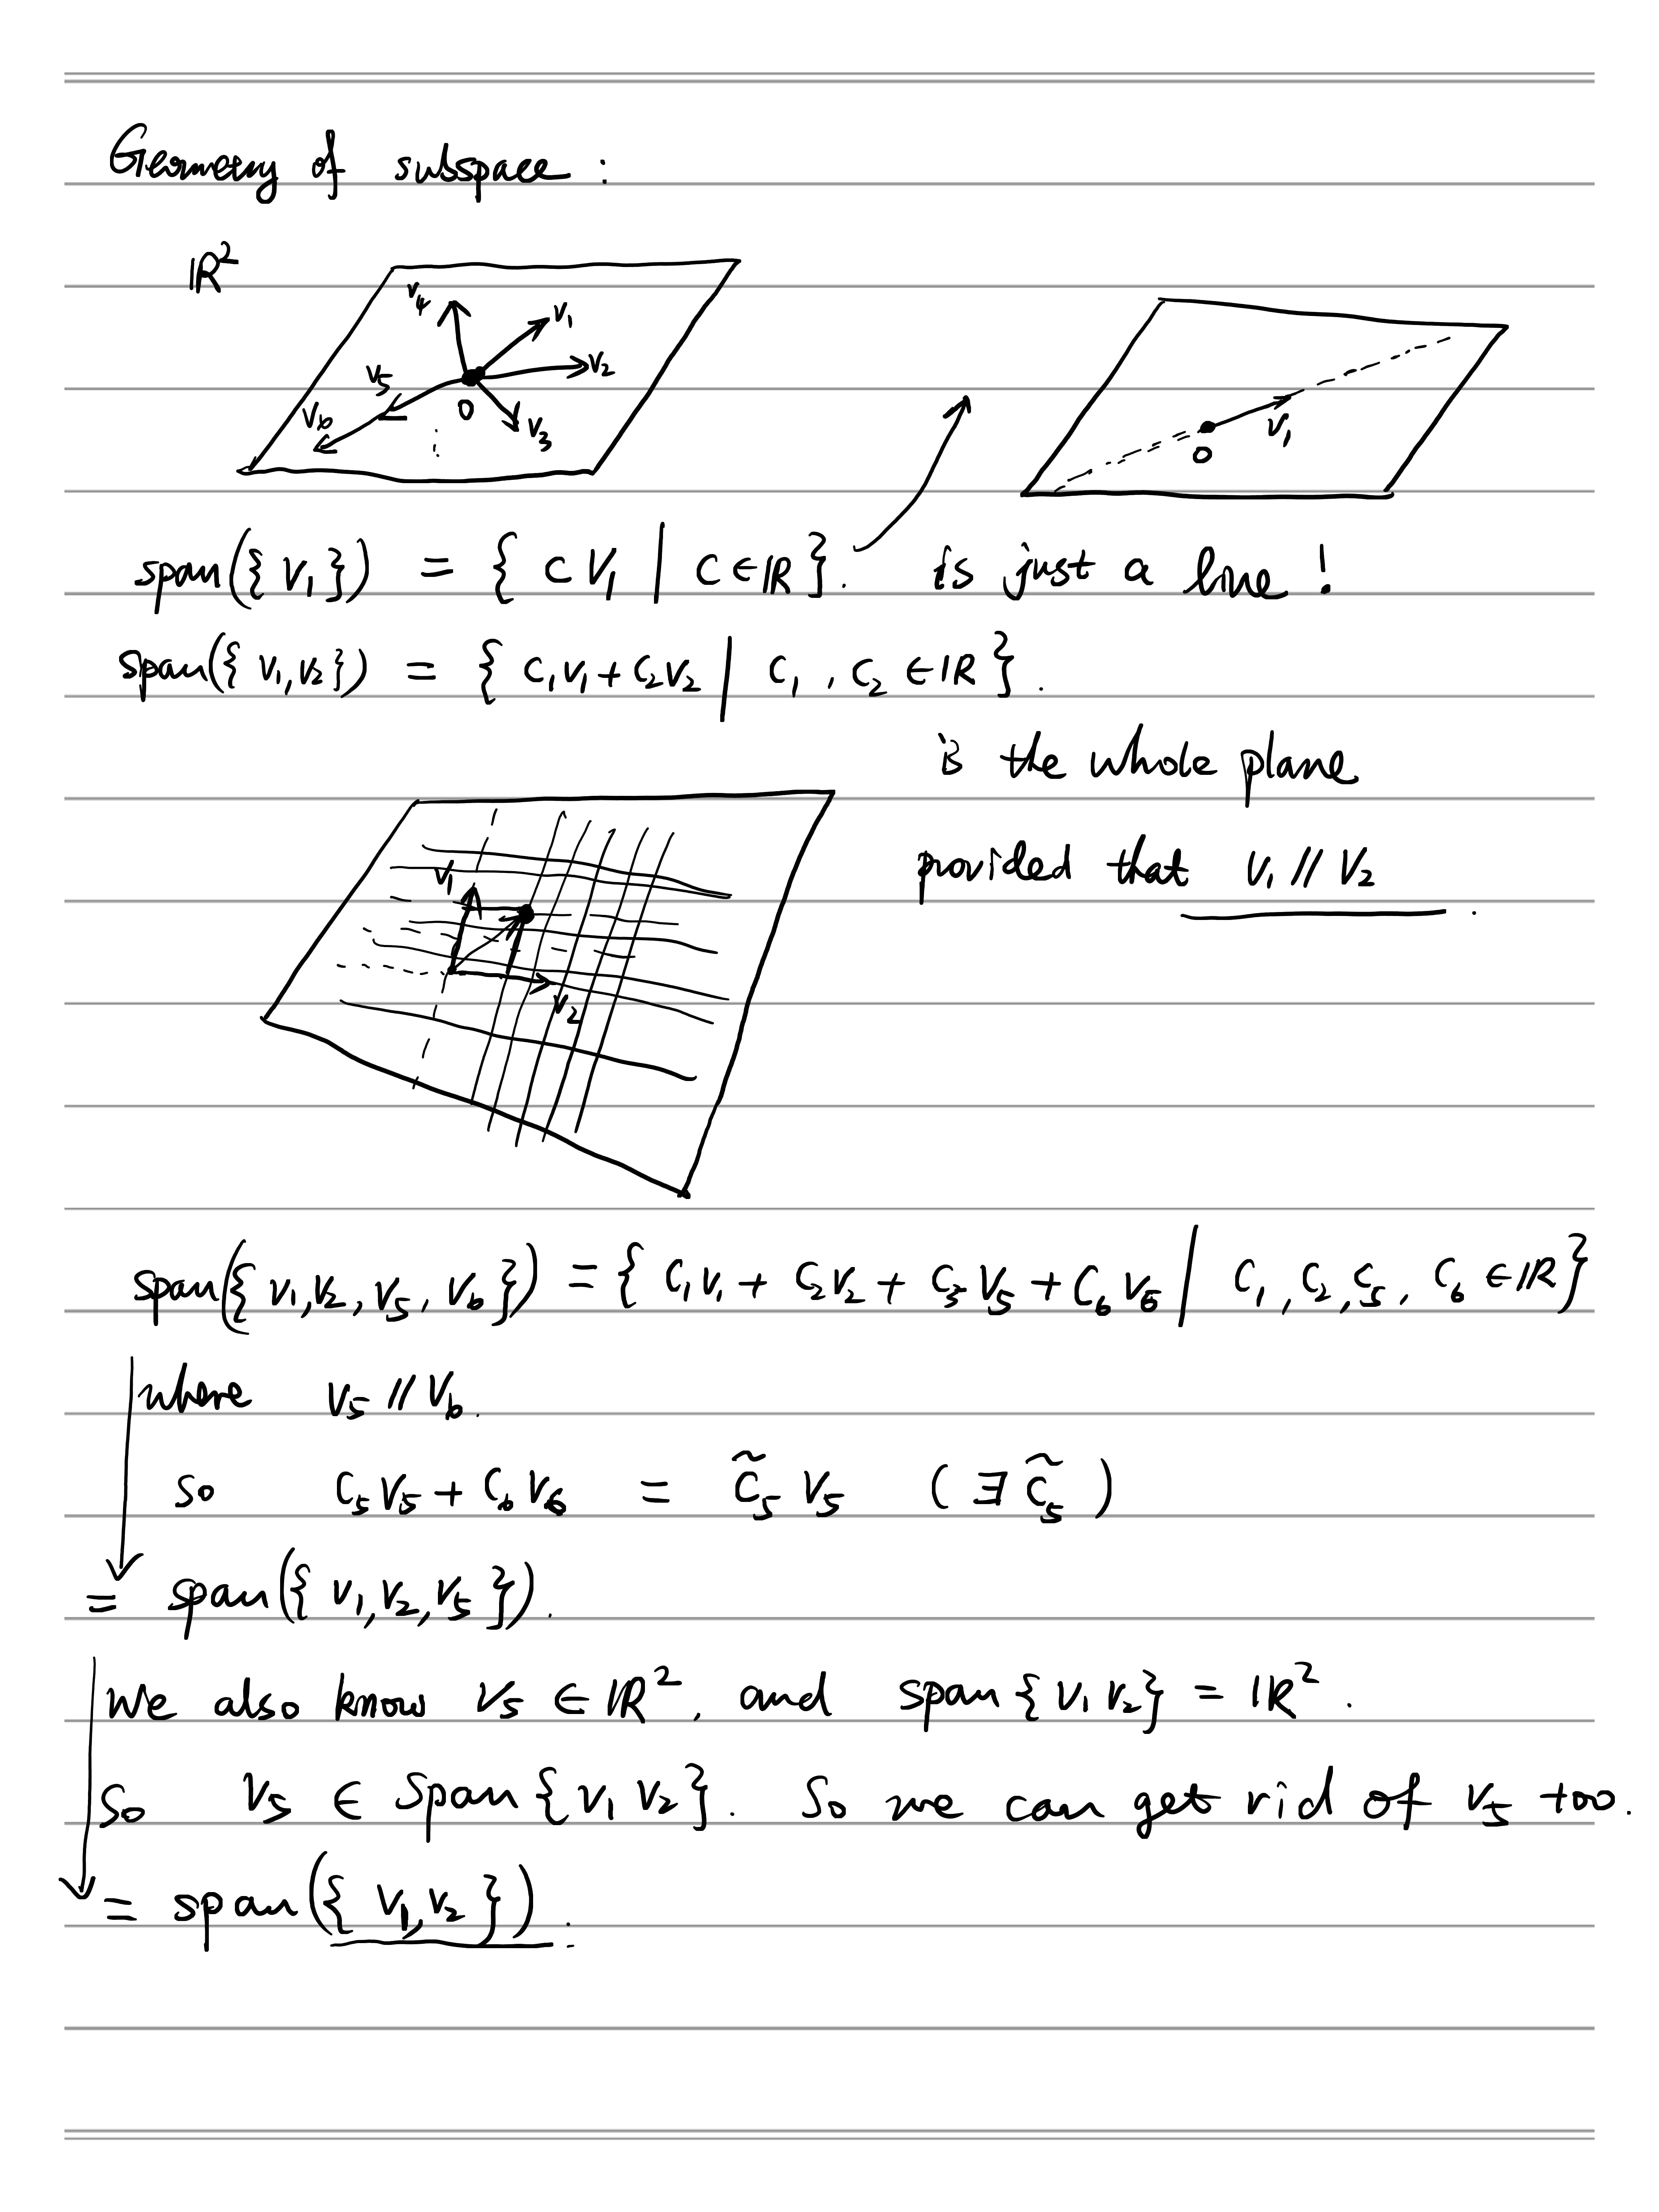 Geometry of subspace :
ℝ²
v₄ v₁ v₂ v₅ v₆ 0 v₃
v₁ 0
span({ v₁ }) = { c v₁ | c ∈ ℝ }. is just a line !
span({ v₁, v₂ }) = { c₁v₁ + c₂v₂ | c₁, c₂ ∈ ℝ }.
is the whole plane
provided that v₁ // v₂.
v₁
v₂
span({ v₁, v₂, v₅, v₆ }) = { c₁v₁ + c₂v₂ + c₅v₅ + c₆v₆ | c₁, c₂, c₅, c₆ ∈ ℝ }
where v₅ // v₆.
so c₅v₅ + c₆v₆ = c̃₅ v₅ ( ∃ c̃₅ )
= span({ v₁, v₂, v₅ }).
we also know v₅ ∈ ℝ², and span{ v₁ v₂ } = ℝ².
So v₅ ∈ span{ v₁ v₂ }. So we can get rid of v₅ too.
= span({ v₁, v₂ }).